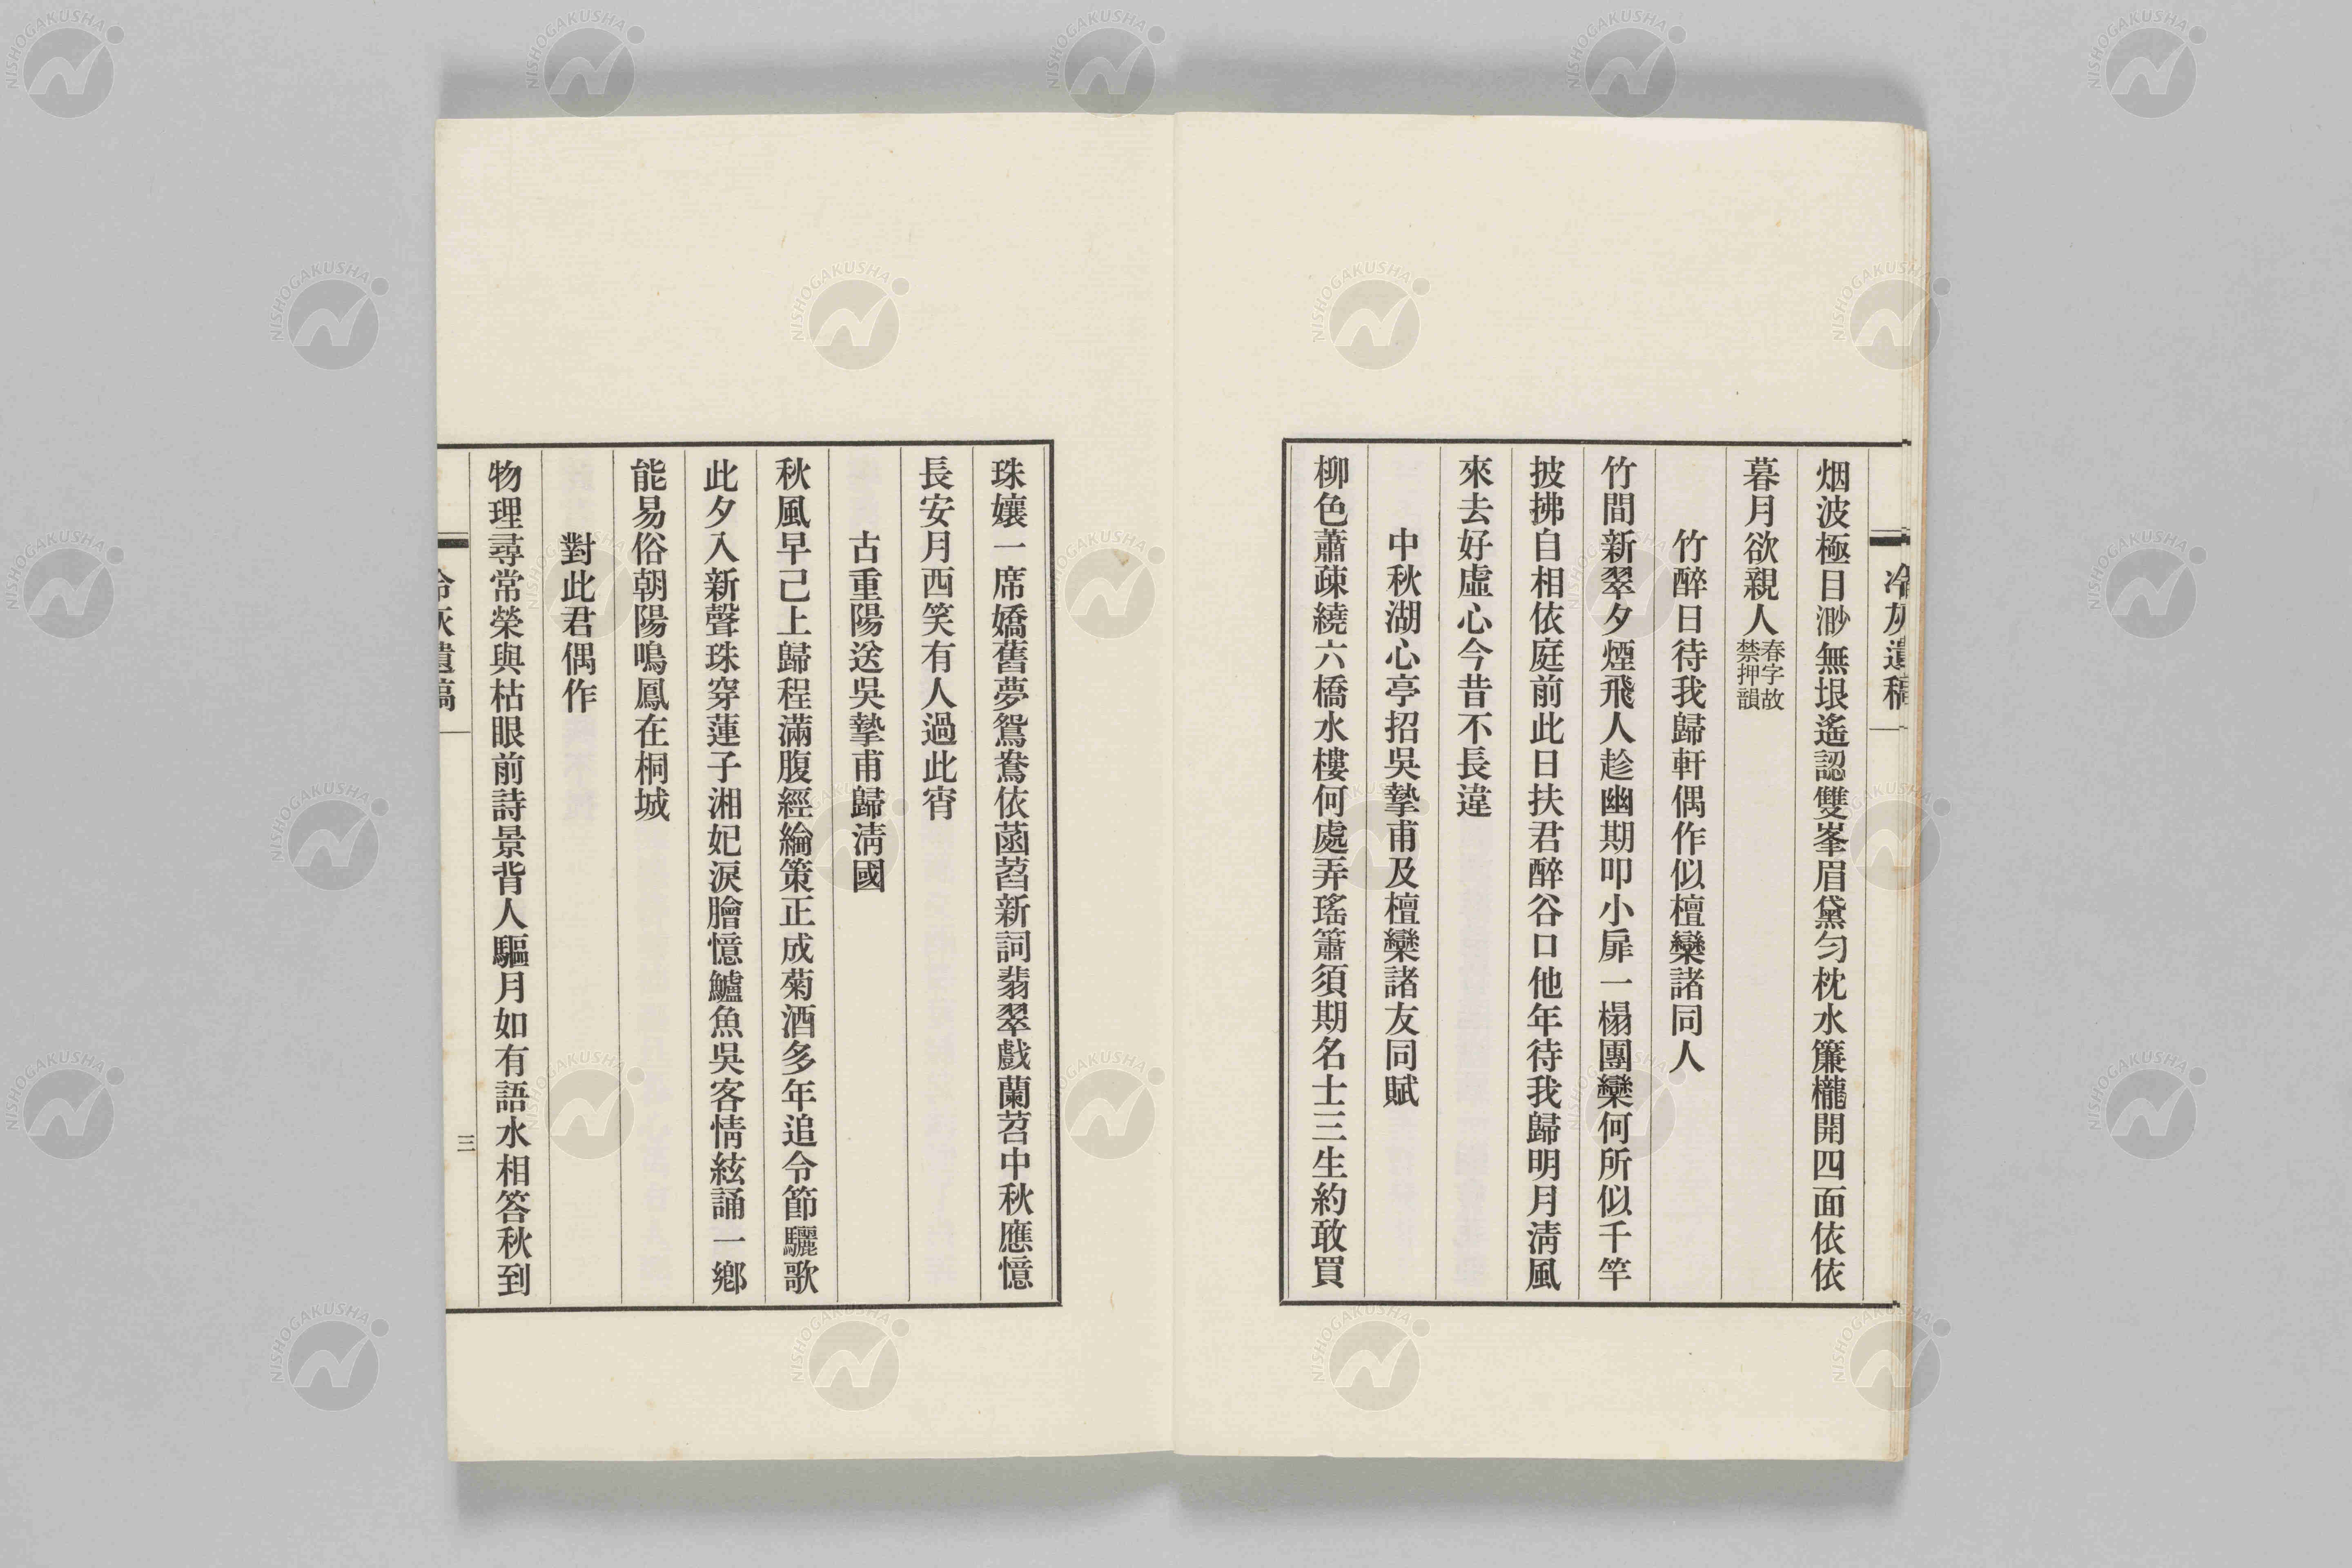 冷灰遺稿
烟波極目渺無垠遙認雙峯眉黛勻枕水簾櫳開四面依依
暮月欲親人春字故禁押韻
竹醉日待我歸軒偶作似檀欒諸同人
竹間新翠夕煙飛人趁幽期叩小扉一榻團欒何所似千竿
披拂自相依庭前此日扶君醉谷口他年待我歸明月淸風
來去好虛心今昔不長違
中秋湖心亭招吳摯甫及檀欒諸友同賦
柳色蕭疎繞六橋水樓何處弄瑤簫須期名士三生約敢買
珠孃一席嬌舊夢鴛鴦依菡萏新詞翡翠戲蘭苕中秋應憶
長安月西笑有人過此宵
古重陽送吳摯甫歸淸國
秋風早已上歸程滿腹經綸策正成菊酒多年追令節驪歌
此夕入新聲珠穿蓮子湘妃淚膾憶鱸魚吳客情絃誦一鄕
能易俗朝陽鳴鳳在桐城
對此君偶作
物理尋常榮與枯眼前詩景背人驅月如有語水相答秋到
冷灰遺稿
三
NISHOGAKUSHA